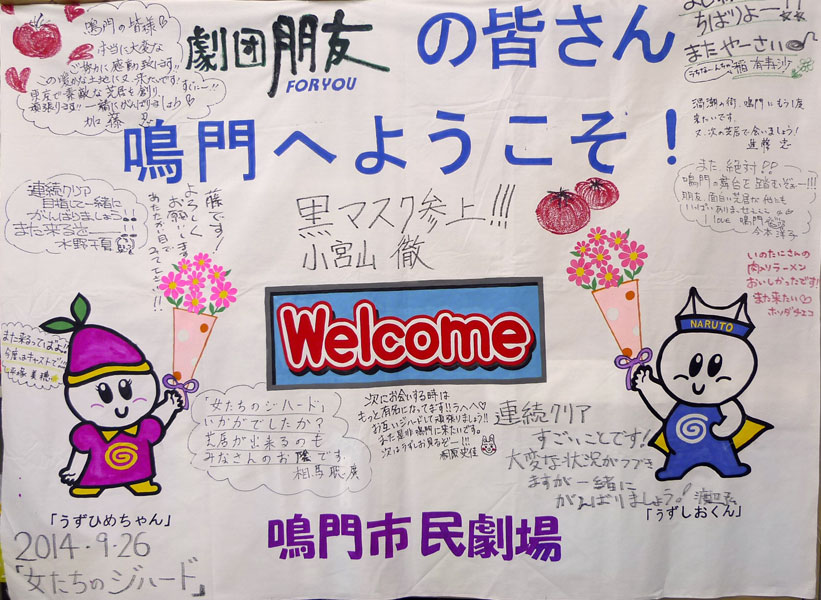 鳴門の皆様
本当に大変な
ご努力に感動致します!!
この暖かな土地に又、来たいです!
東京で素敵な芝居を創り、
頑張ります!! 一緒にがんばりましょう
加藤 忍
劇団朋友
FORYOU
の皆さん
ちばりよー!!
またやーさい
うちなーんちゅの 稲 有寿沙
鳴門へようこそ!
渦潮の街、鳴門にもう1度
来たいです。
又、次の芝居で会いましょう!
進藤 忠
連続クリア
目指して一緒に
がんばりましょう!!
また来るぞーー!!
水野千夏
藤です!
よろしく
お願いします
黒マスク参上!!!
小宮山 徹
また、絶対??
鳴門の舞台を踏むぞぉー!!!
朋友、面白い芝居が他にも
いっぱいありま、せんん
love 鳴門
今本 洋子
いのたにさんの
肉入りラーメン
おいしかったです!
また来たい♡
ホソダチエコ
Welcome
NARUTO
また来るってばよ!!
今度はキャストで!!
「女たちのジハード」
いかがでしたか?
芝居が出来るのも
みなさんのお陰です
相馬聡廣
次にお会いする時は
もっと有名になってます!!ラヘヘ♡
お互いジハードして頑張りましょう!!
また是非鳴門に来たいです。
次はうずしお見るぞー!!!
桐原史佳
連続クリア
すごいことです!
大変な状況がつづき
ますが一緒に
がんばりましょう!
「うずひめちゃん」
「うずしおくん」
2014・9・26
「女たちのジハード」
鳴門市民劇場